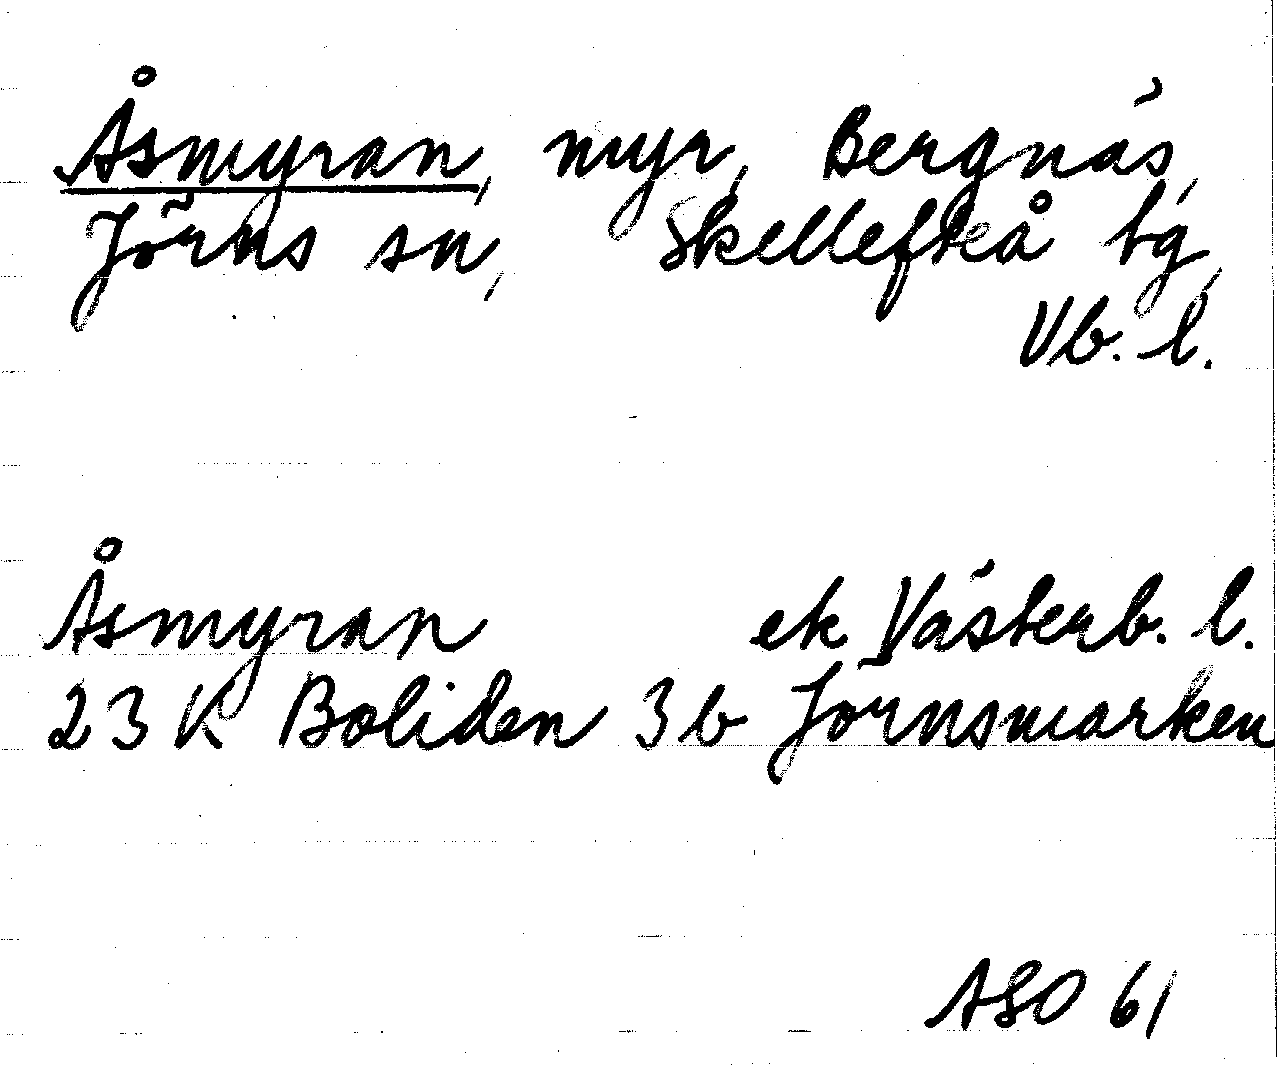 Åsmyran, myr, Bergnäs,
Jörns sn, Skellefteå tg,
Vb. l.
Åsmyran ek Västerb. l.
23 K Boliden 3b Jörnsmarken
ASO 61